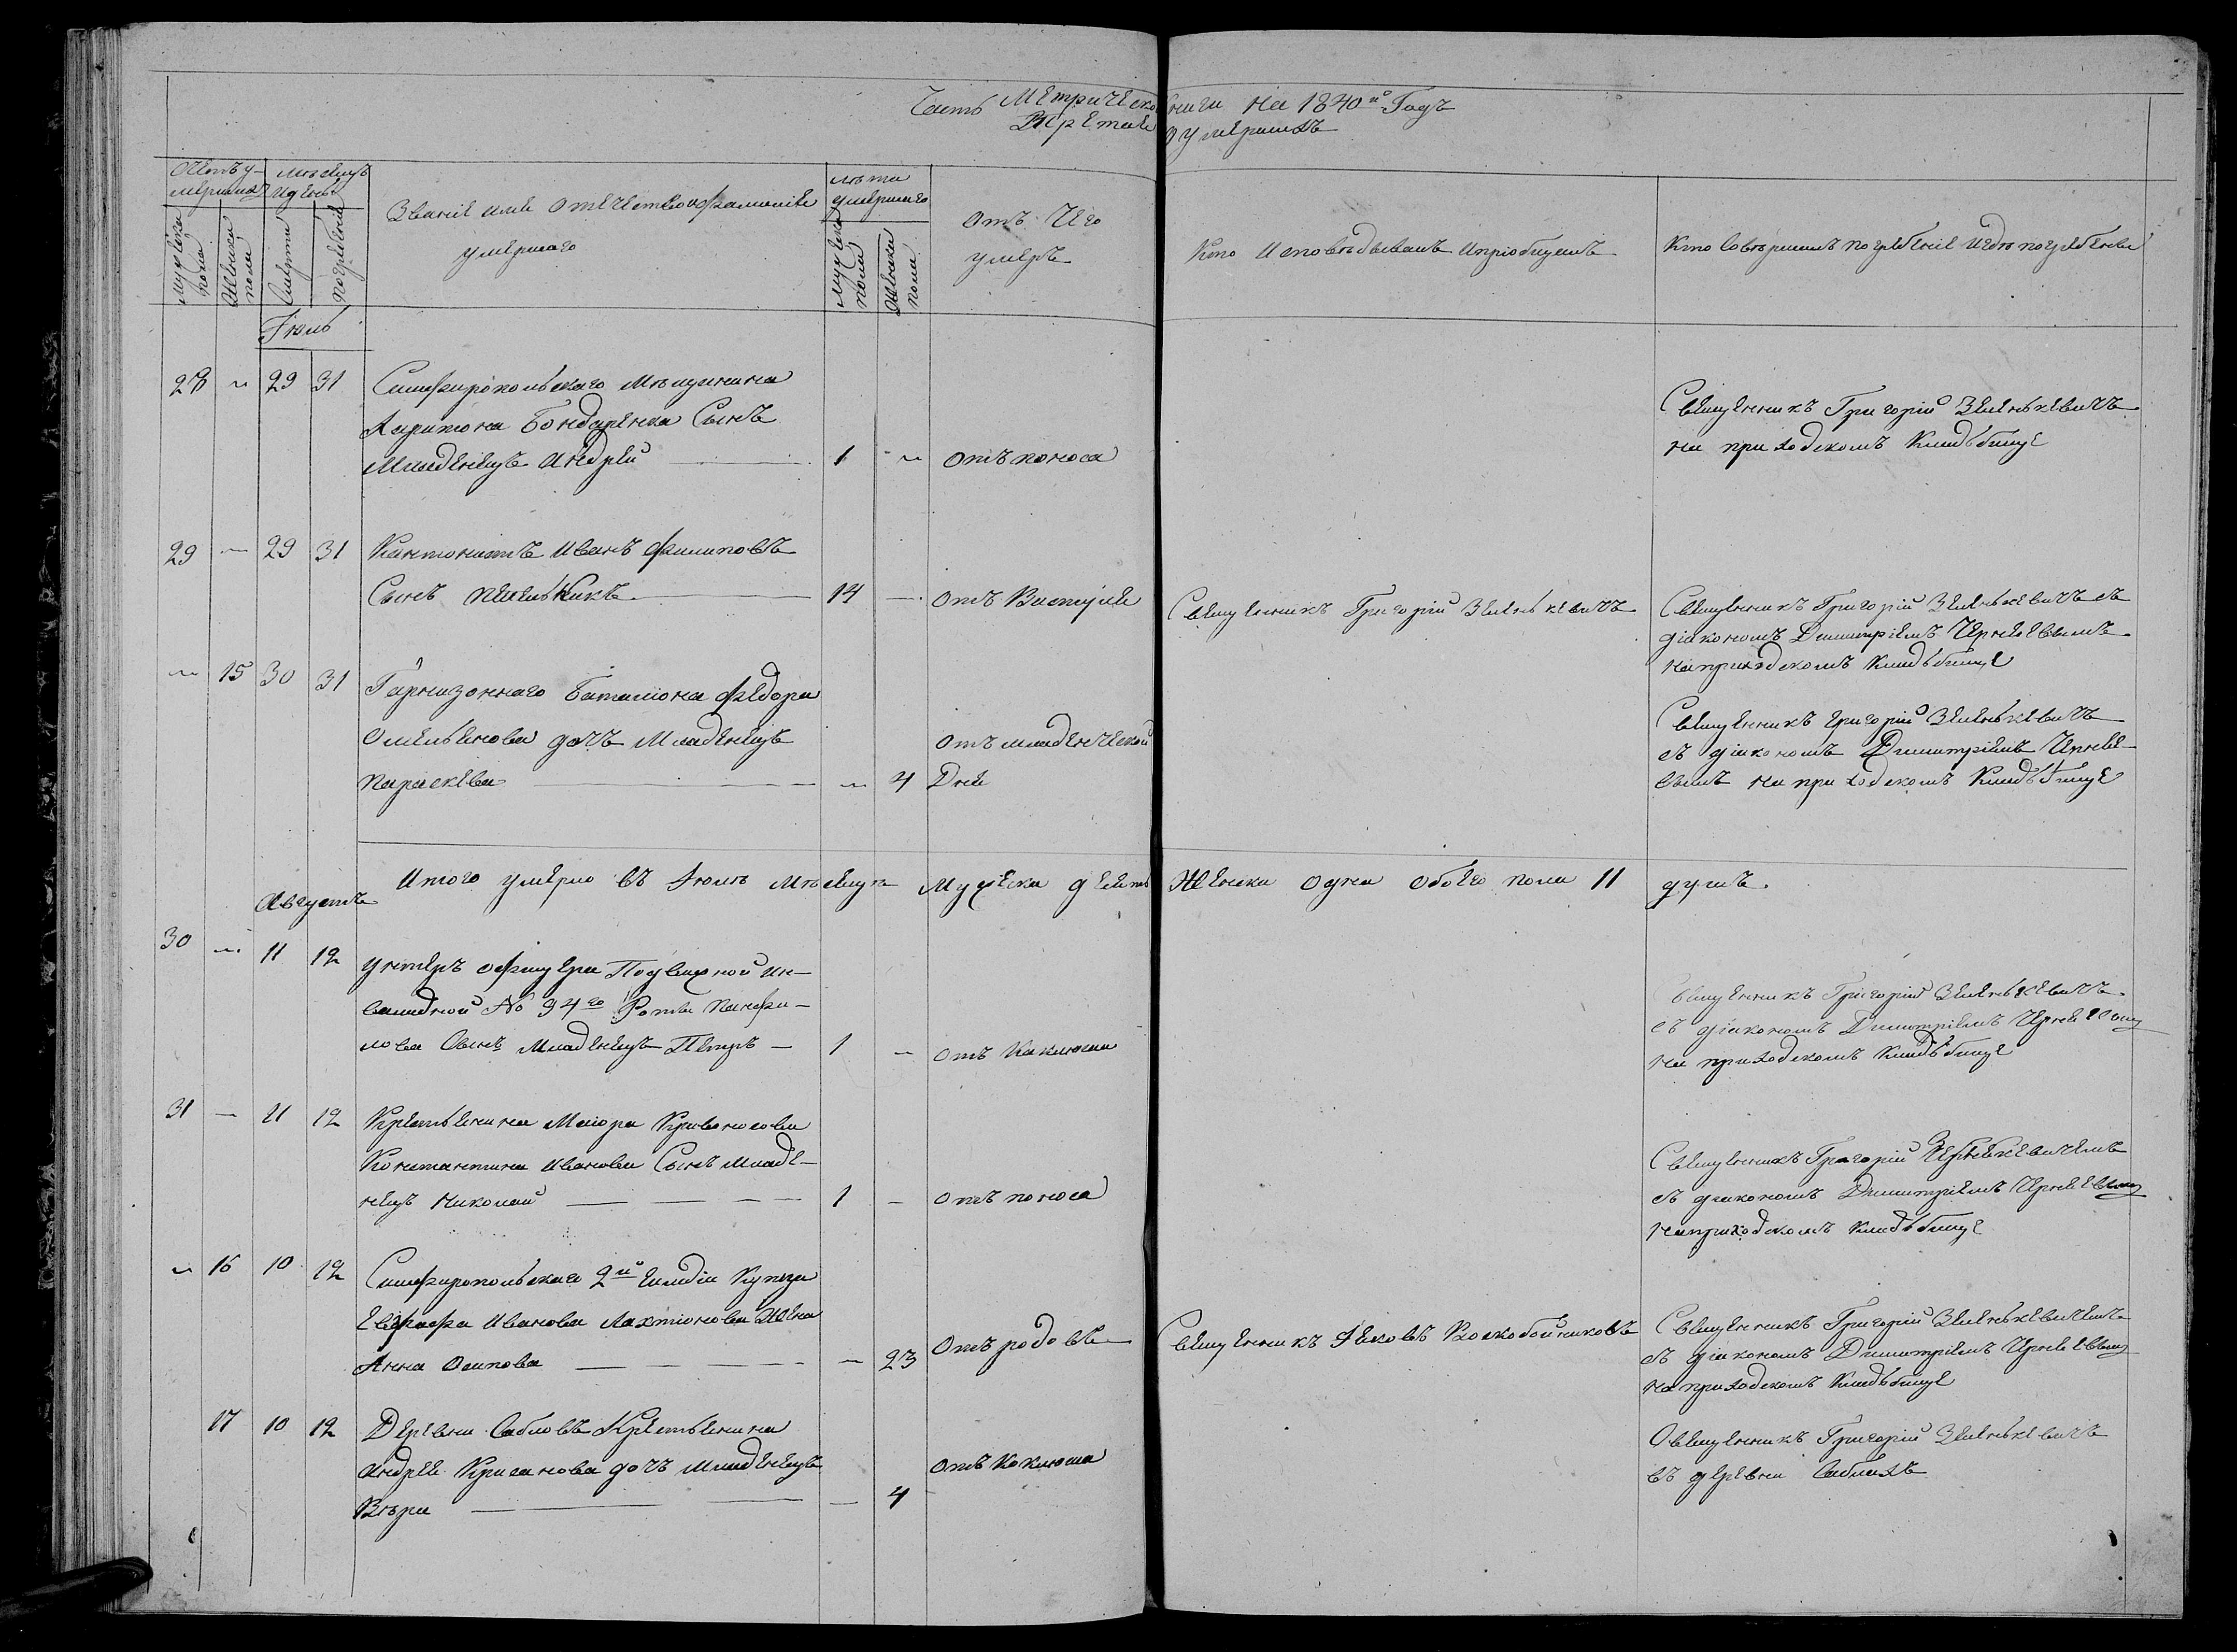 Часть Метрической книги на 1840й Годъ
Третья о умершихъ
Счетъ у-
мершихъ
мужеска пола
Женска пола
месяцъ
и день
Смерти
погребения
Званіе имя отечество и фамилія
умершаго
лѣта
умершаго
мужеска пола
Женска пола
отъ Чего
умеръ
Кто Исповѣдывалъ и пріобщилъ
Кто Совершилъ погребеніе и гдѣ погребены
Іюль
28 29 31 Симферопольскаго Мѣщанина
Харитона Бондаренка Сынъ
Младенецъ Андрей 1 отъ поноса
Священникъ Григорій Зеленкевичъ
на приходскомъ Кладбище
29 — 29 31 Кантонистъ Иванъ Филиповъ
Сынъ 14 — отъ
Священникъ Григорій Зеленькевичъ
Священникъ Григорій Зеленькевичъ съ
діакономъ Димитріемъ Чернеевымъ
на приходскомъ Кладбище
15 30 31 Гарнизоннаго Баталіона Федора
Омельянова дочь Младенецъ
Параскева 4 отъ младенческой
Дня
Священникъ Григорій Зеленькевичъ
съ діакономъ Димитріемъ Чернее-
вымъ на приходскомъ Кладбище
Итого умерло въ Іюлѣ Мѣсяцѣ Мужеска десять Женска одна обоего пола 11 душъ.
Августъ
30 11 12 унтеръ офицера Подвижной ин-
валидной № 94го Роты Панфи-
лова Сынъ Младенецъ Петръ — 1 — отъ Каклюша
Священникъ Григорій Зеленькевичъ
съ діакономъ Димитріемъ Чернеевым
на приходскомъ Кладбище
31 — 11 12 Крестьянина Маіора Кривоносова
Константина Иванова Сынъ младе-
нецъ Николай 1 — отъ поноса
Священникъ Григорій Зеленкевичемъ
съ діакономъ Димитріемъ Чернеевым
на приходскомъ Кладбище
16 10 12 Симферопольскаго 2й Гилдіи Купца
Евграфа Иванова Лактіонова Жена
Анна Осипова — 23 Отъ родовъ
Священникъ Іяковъ Воскобойниковъ
Священникъ Григорій Зеленькевичемъ
съ діакономъ Димитріемъ Чернеевым
на приходскомъ Кладбище
17 10 12 Деревни Сабловъ Крестьянина
Андрея дочь младенецъ
Вѣра — 4 отъ Коклюша
Священникъ Григорій Зеленькевичъ
въ деревни Саблахъ